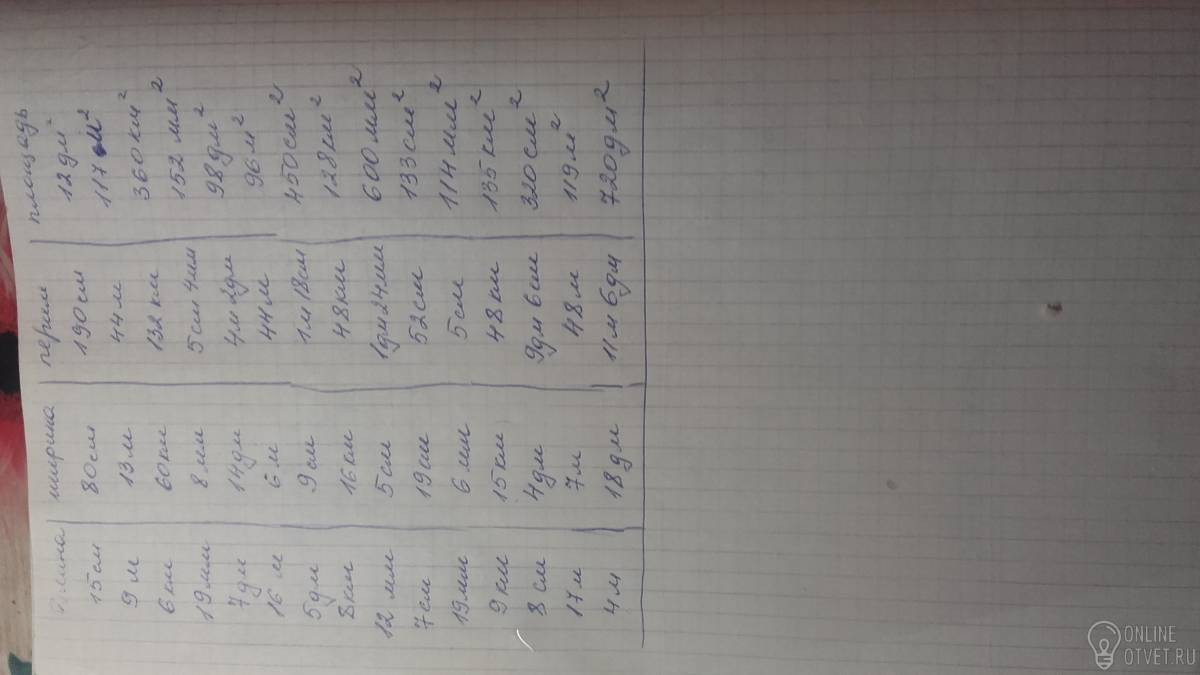 длина ширина перим площадь
15см 80см 190см 12дм²
9м 13м 44м 117м²
6км 60км 132км 360км²
19мм 8мм 5см 4мм 152мм²
7дм 14дм 4м 2дм 98дм²
16м 6м 44м 96м²
5дм 9см 1м 18см 450см²
8км 16км 48км 128км²
12мм 5см 1дм24мм 600мм²
7см 19см 52см 133см²
19мм 6мм 5см 114мм²
9км 15км 48км 135км²
8см 4дм 9дм 6см 320см²
17м 7м 48м 119м²
4м 18дм 11м 6дм 720дм²
ONLINE
OTVET.RU